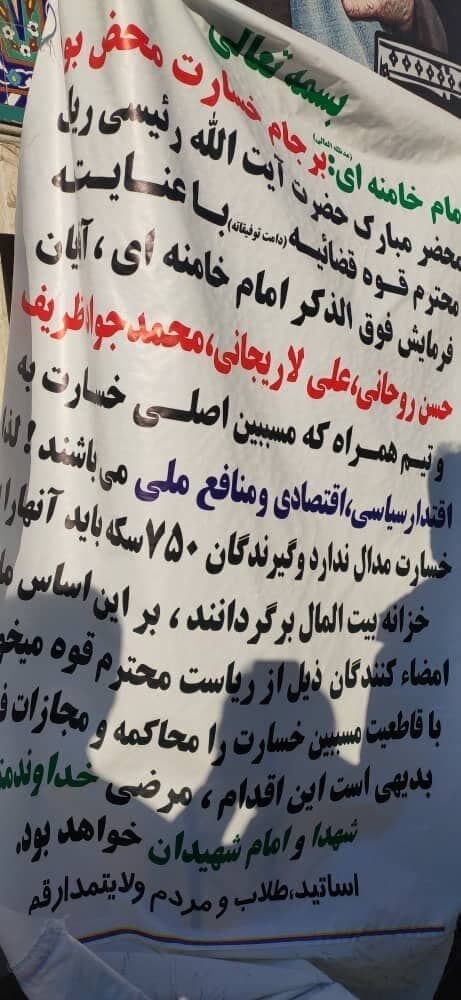 بسمه تعالی
مام خامنه ای:(مدظله العالی) برجام خسارت محض بو
محضر مبارک حضرت آیت الله رئیسی ریا
محترم قوه قضائیه (دامت توفیقاته) با عنایته
فرمایش فوق الذکر امام خامنه ای ، آقایان
حسن روحانی،علی لاریجانی،محمدجواد ظریف
و تیم همراه که مسببین اصلی خسارت به
اقتدار سیاسی،اقتصادی و منافع ملی می باشند! لذا
خسارت مدال ندارد وگیرندگان ۷۵۰ سکه باید آنهارا
خزانه بیت المال برگردانند ، بر این اساس ما
امضاء کنندگان ذیل از ریاست محترم قوه میخو
با قاطعیت مسببین خسارت را محاکمه و مجازات ف
بدیهی است این اقدام ، مرضی خداوندمت
شهدا و امام شهیدان خواهد بود.
اساتید،طلاب و مردم ولایتمدار قم